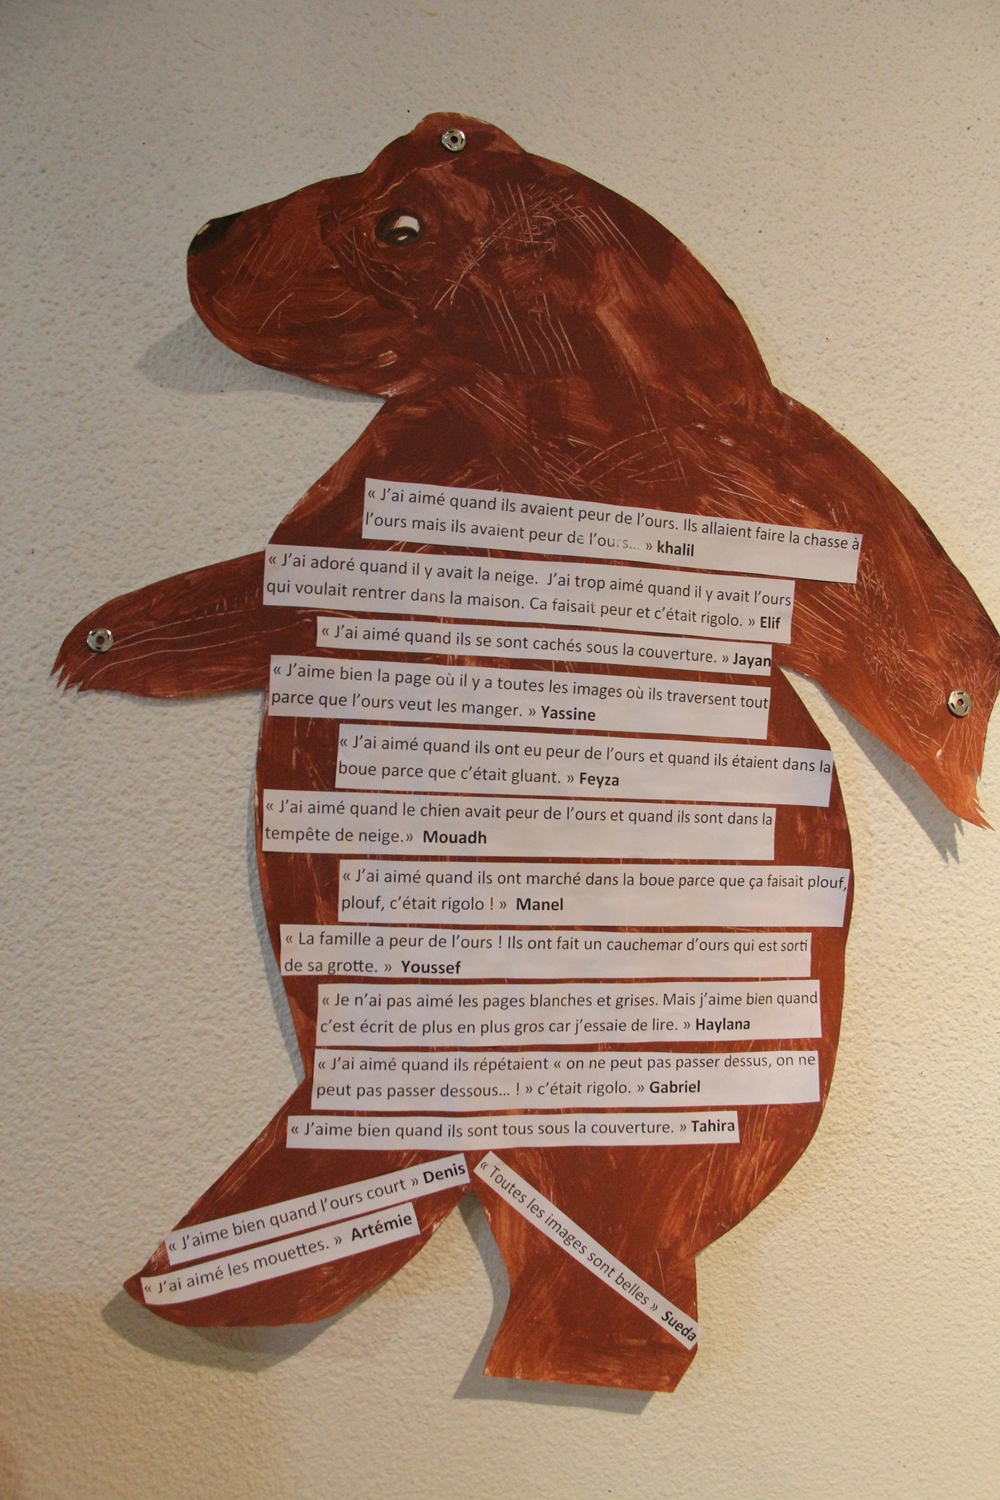 « J'ai aimé quand ils avaient peur de l'ours. Ils allaient faire la chasse à
l'ours mais ils avaient peur de l'ours... » khalil
« J'ai adoré quand il y avait la neige. J'ai trop aimé quand il y avait l'ours
qui voulait rentrer dans la maison. Ca faisait peur et c'était rigolo. » Elif
« J'ai aimé quand ils se sont cachés sous la couverture. » Jayan
« J'aime bien la page où il y a toutes les images où ils traversent tout
parce que l'ours veut les manger. » Yassine
« J'ai aimé quand ils ont eu peur de l'ours et quand ils étaient dans la
boue parce que c'était gluant. » Feyza
« J'ai aimé quand le chien avait peur de l'ours et quand ils sont dans la
tempête de neige.» Mouadh
« J'ai aimé quand ils ont marché dans la boue parce que ça faisait plouf,
plouf, c'était rigolo ! » Manel
« La famille a peur de l'ours ! Ils ont fait un cauchemar d'ours qui est sorti
de sa grotte. » Youssef
« Je n'ai pas aimé les pages blanches et grises. Mais j'aime bien quand
c'est écrit de plus en plus gros car j'essaie de lire. » Haylana
« J'ai aimé quand ils répétaient « on ne peut pas passer dessus, on ne
peut pas passer dessous... ! » c'était rigolo. » Gabriel
« J'aime bien quand ils sont tous sous la couverture. » Tahira
« J'aime bien quand l'ours court » Denis
« J'ai aimé les mouettes. » Artémie
« Toutes les images sont belles » Sueda